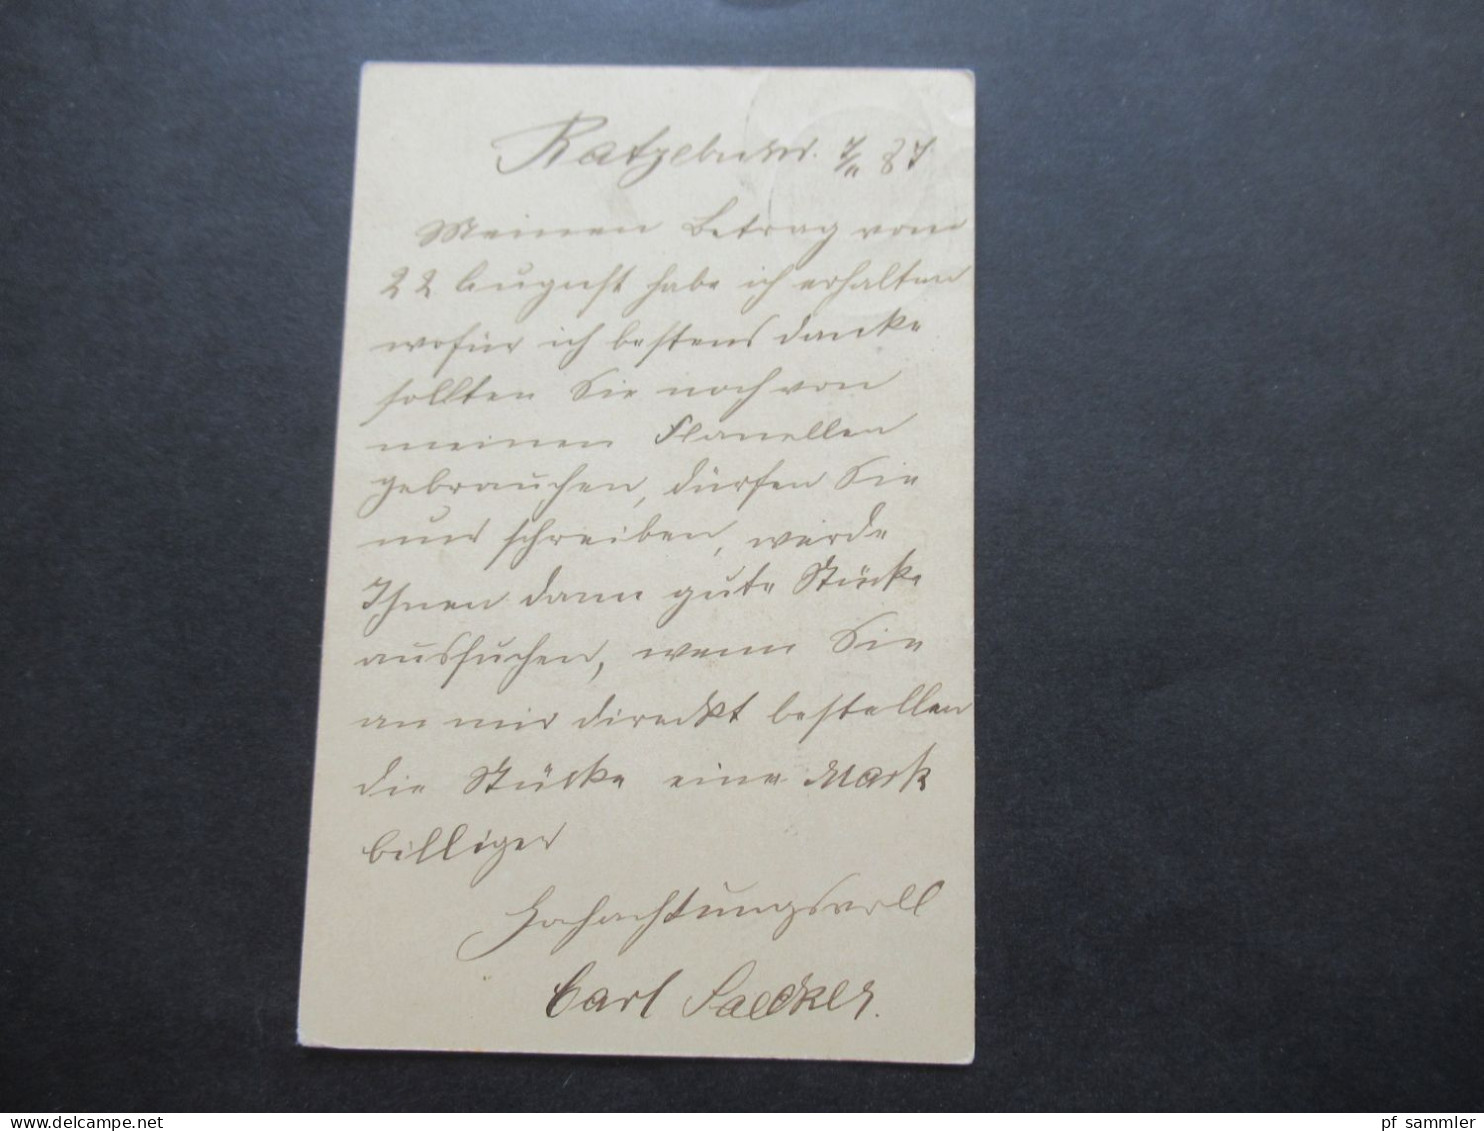 Ratzebuhr. 7/11 87
Meinen Betrag vom
22 August habe ich erhalten
wofür ich bestens danke
sollten Sie noch von
meinen Flanellen
gebrauchen, dürfen Sie
nur schreiben, werde
Ihnen dann gute Stücke
aussuchen, wenn Sie
an mir direckt bestellen
die Stücke eine Mark
billiger
Hochachtungsvoll
Carl Saecker.
www.delcampe.net
pf_sammler